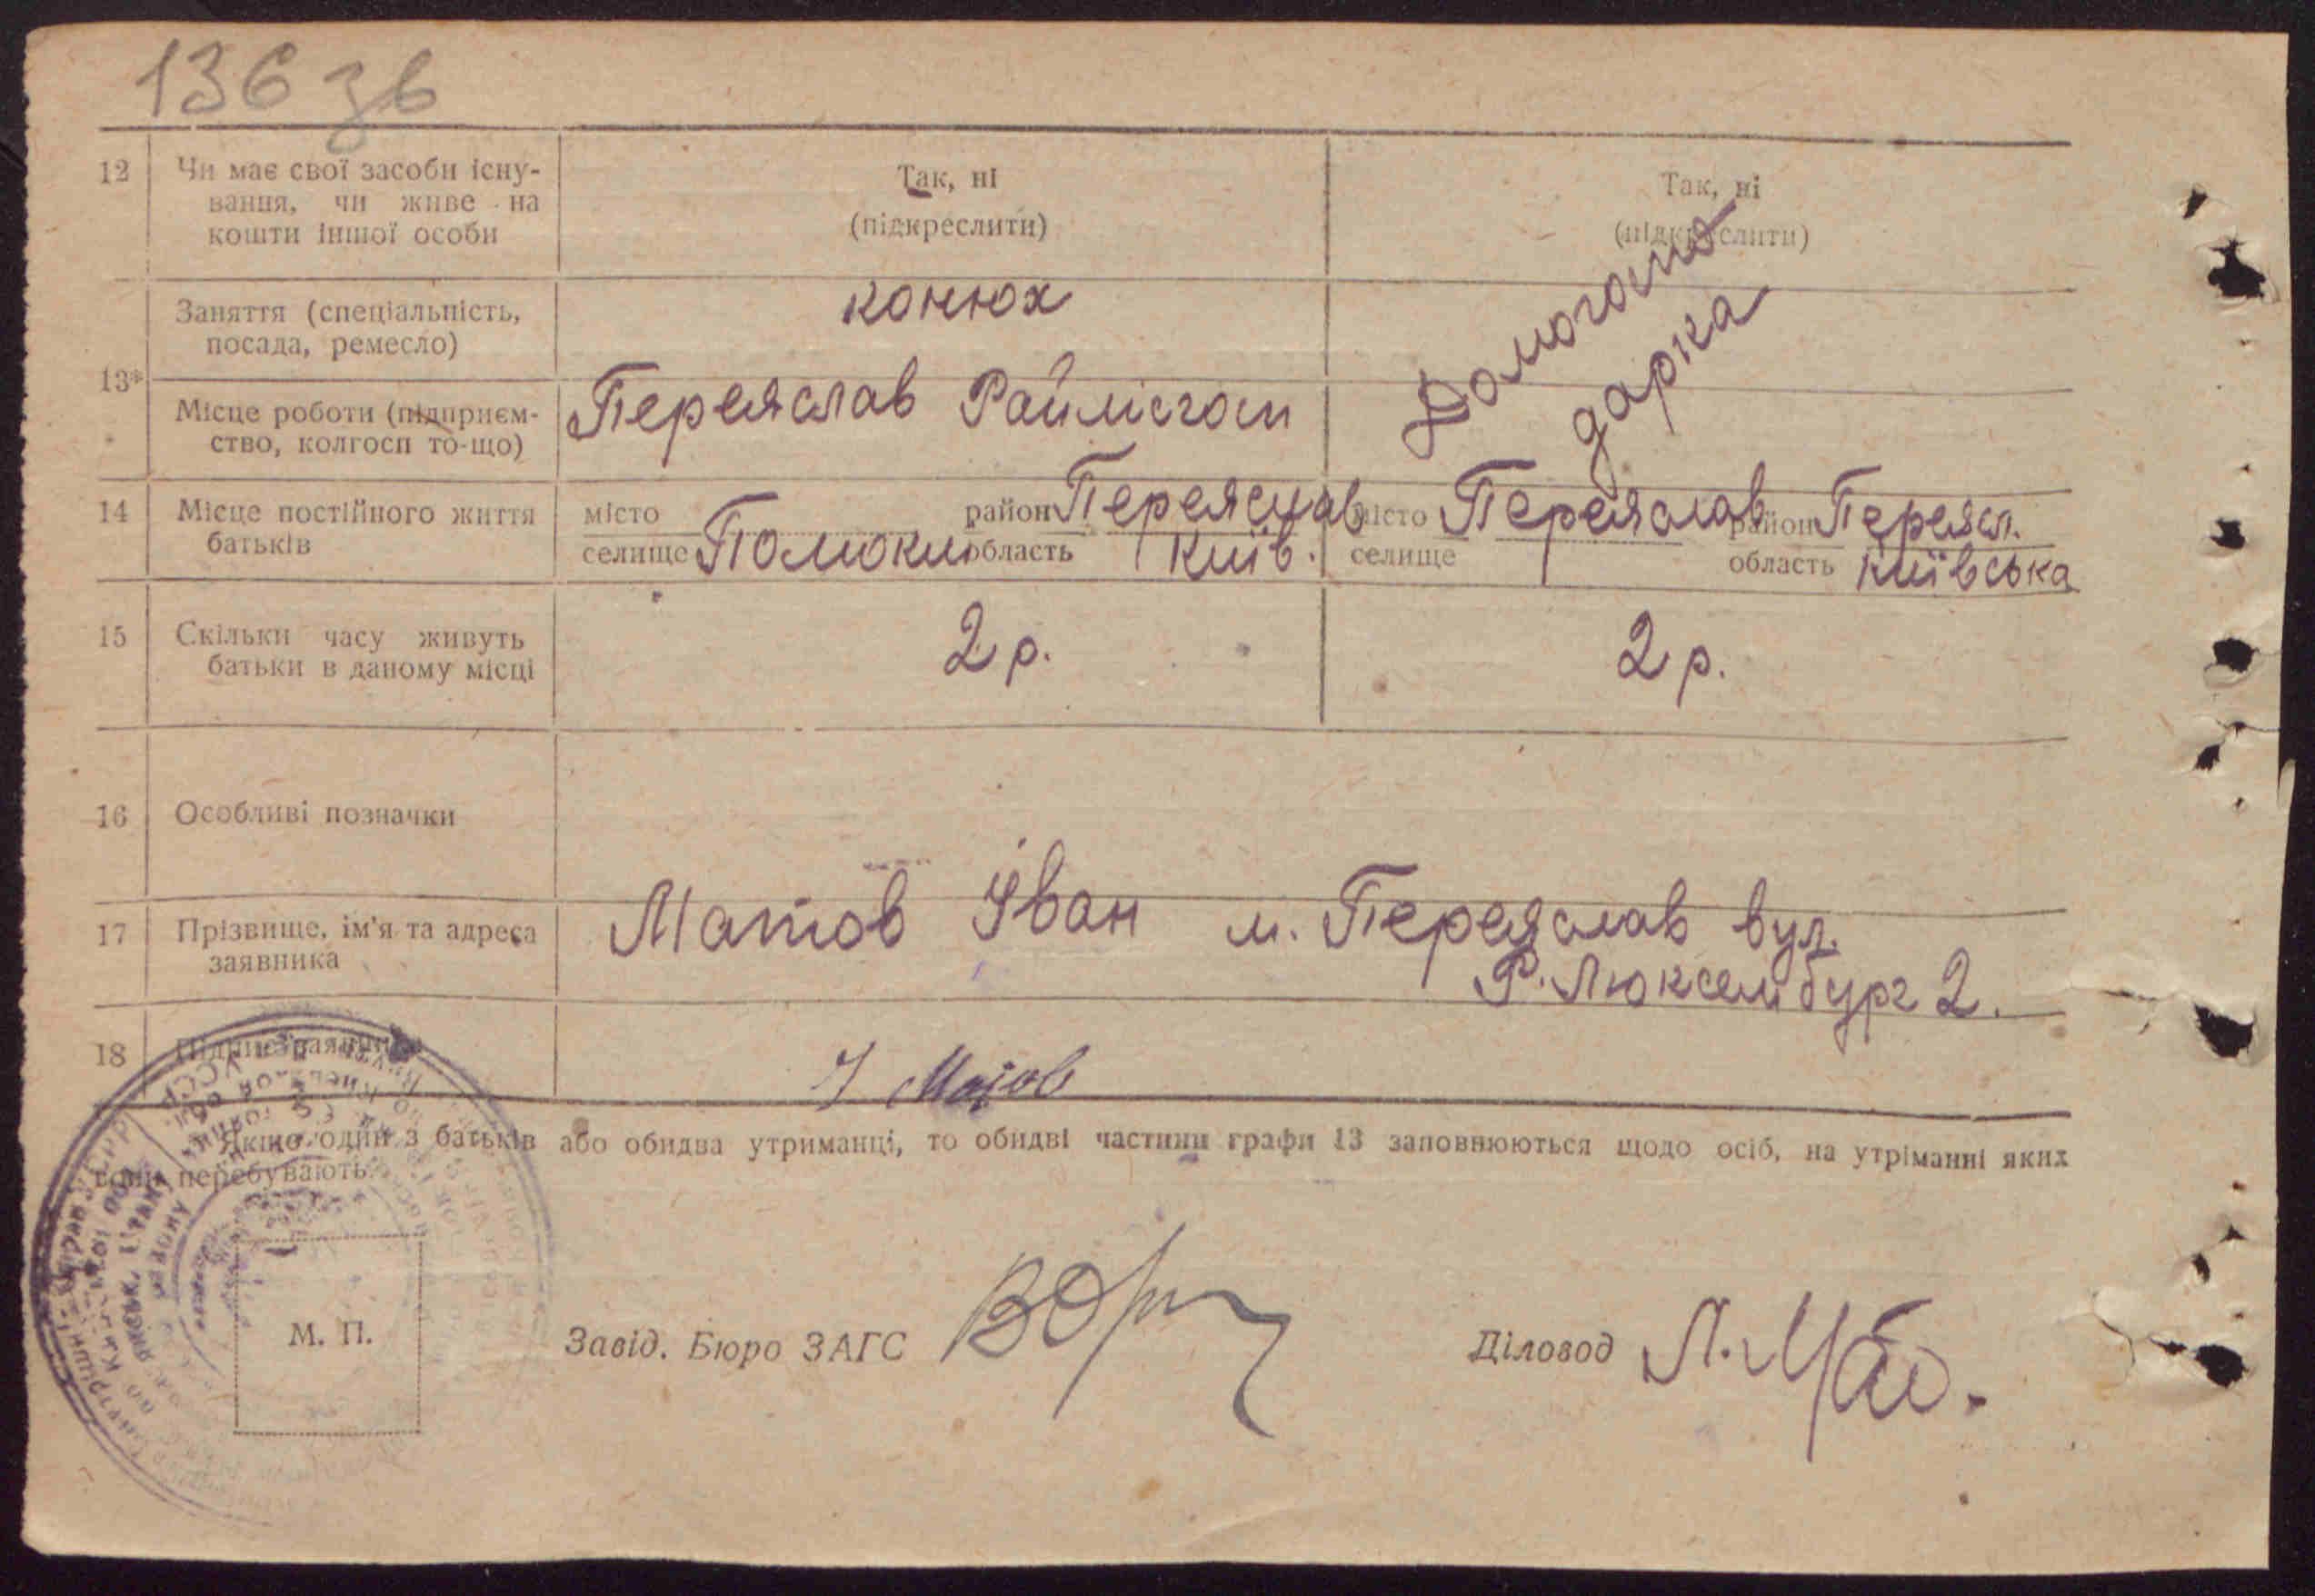 136 зв
12 Чи має свої засоби існу-
вання, чи живе на
кошти іншої особи
Так, ні
(підкреслити)
Так, ні
(підкреслити)
13* Заняття (спеціальність,
посада, ремесло)
конюх
Домогосподарка
Місце роботи (підприєм-
ство, колгосп то-що)
Переяслав Райлісгосп
14 Місце постійного життя
батьків
місто район Переяслав
селище Помоки область Київ.
місто Переяслав район Переясл.
селище область Київська
15 Скільки часу живуть
батьки в даному місці
2 р.
2 р.
16 Особливі позначки
17 Прізвище, ім'я та адреса
заявника
Матов Іван м. Переяслав вул.
Р. Люксембург 2.
18 Підпис заявника
І Матов
Якщо один з батьків або обидва утриманці, то обидві частини графи 13 заповнюються щодо осіб, на утриманні яких
вони перебувають.
М. П.
Завід. Бюро ЗАГС
Діловод